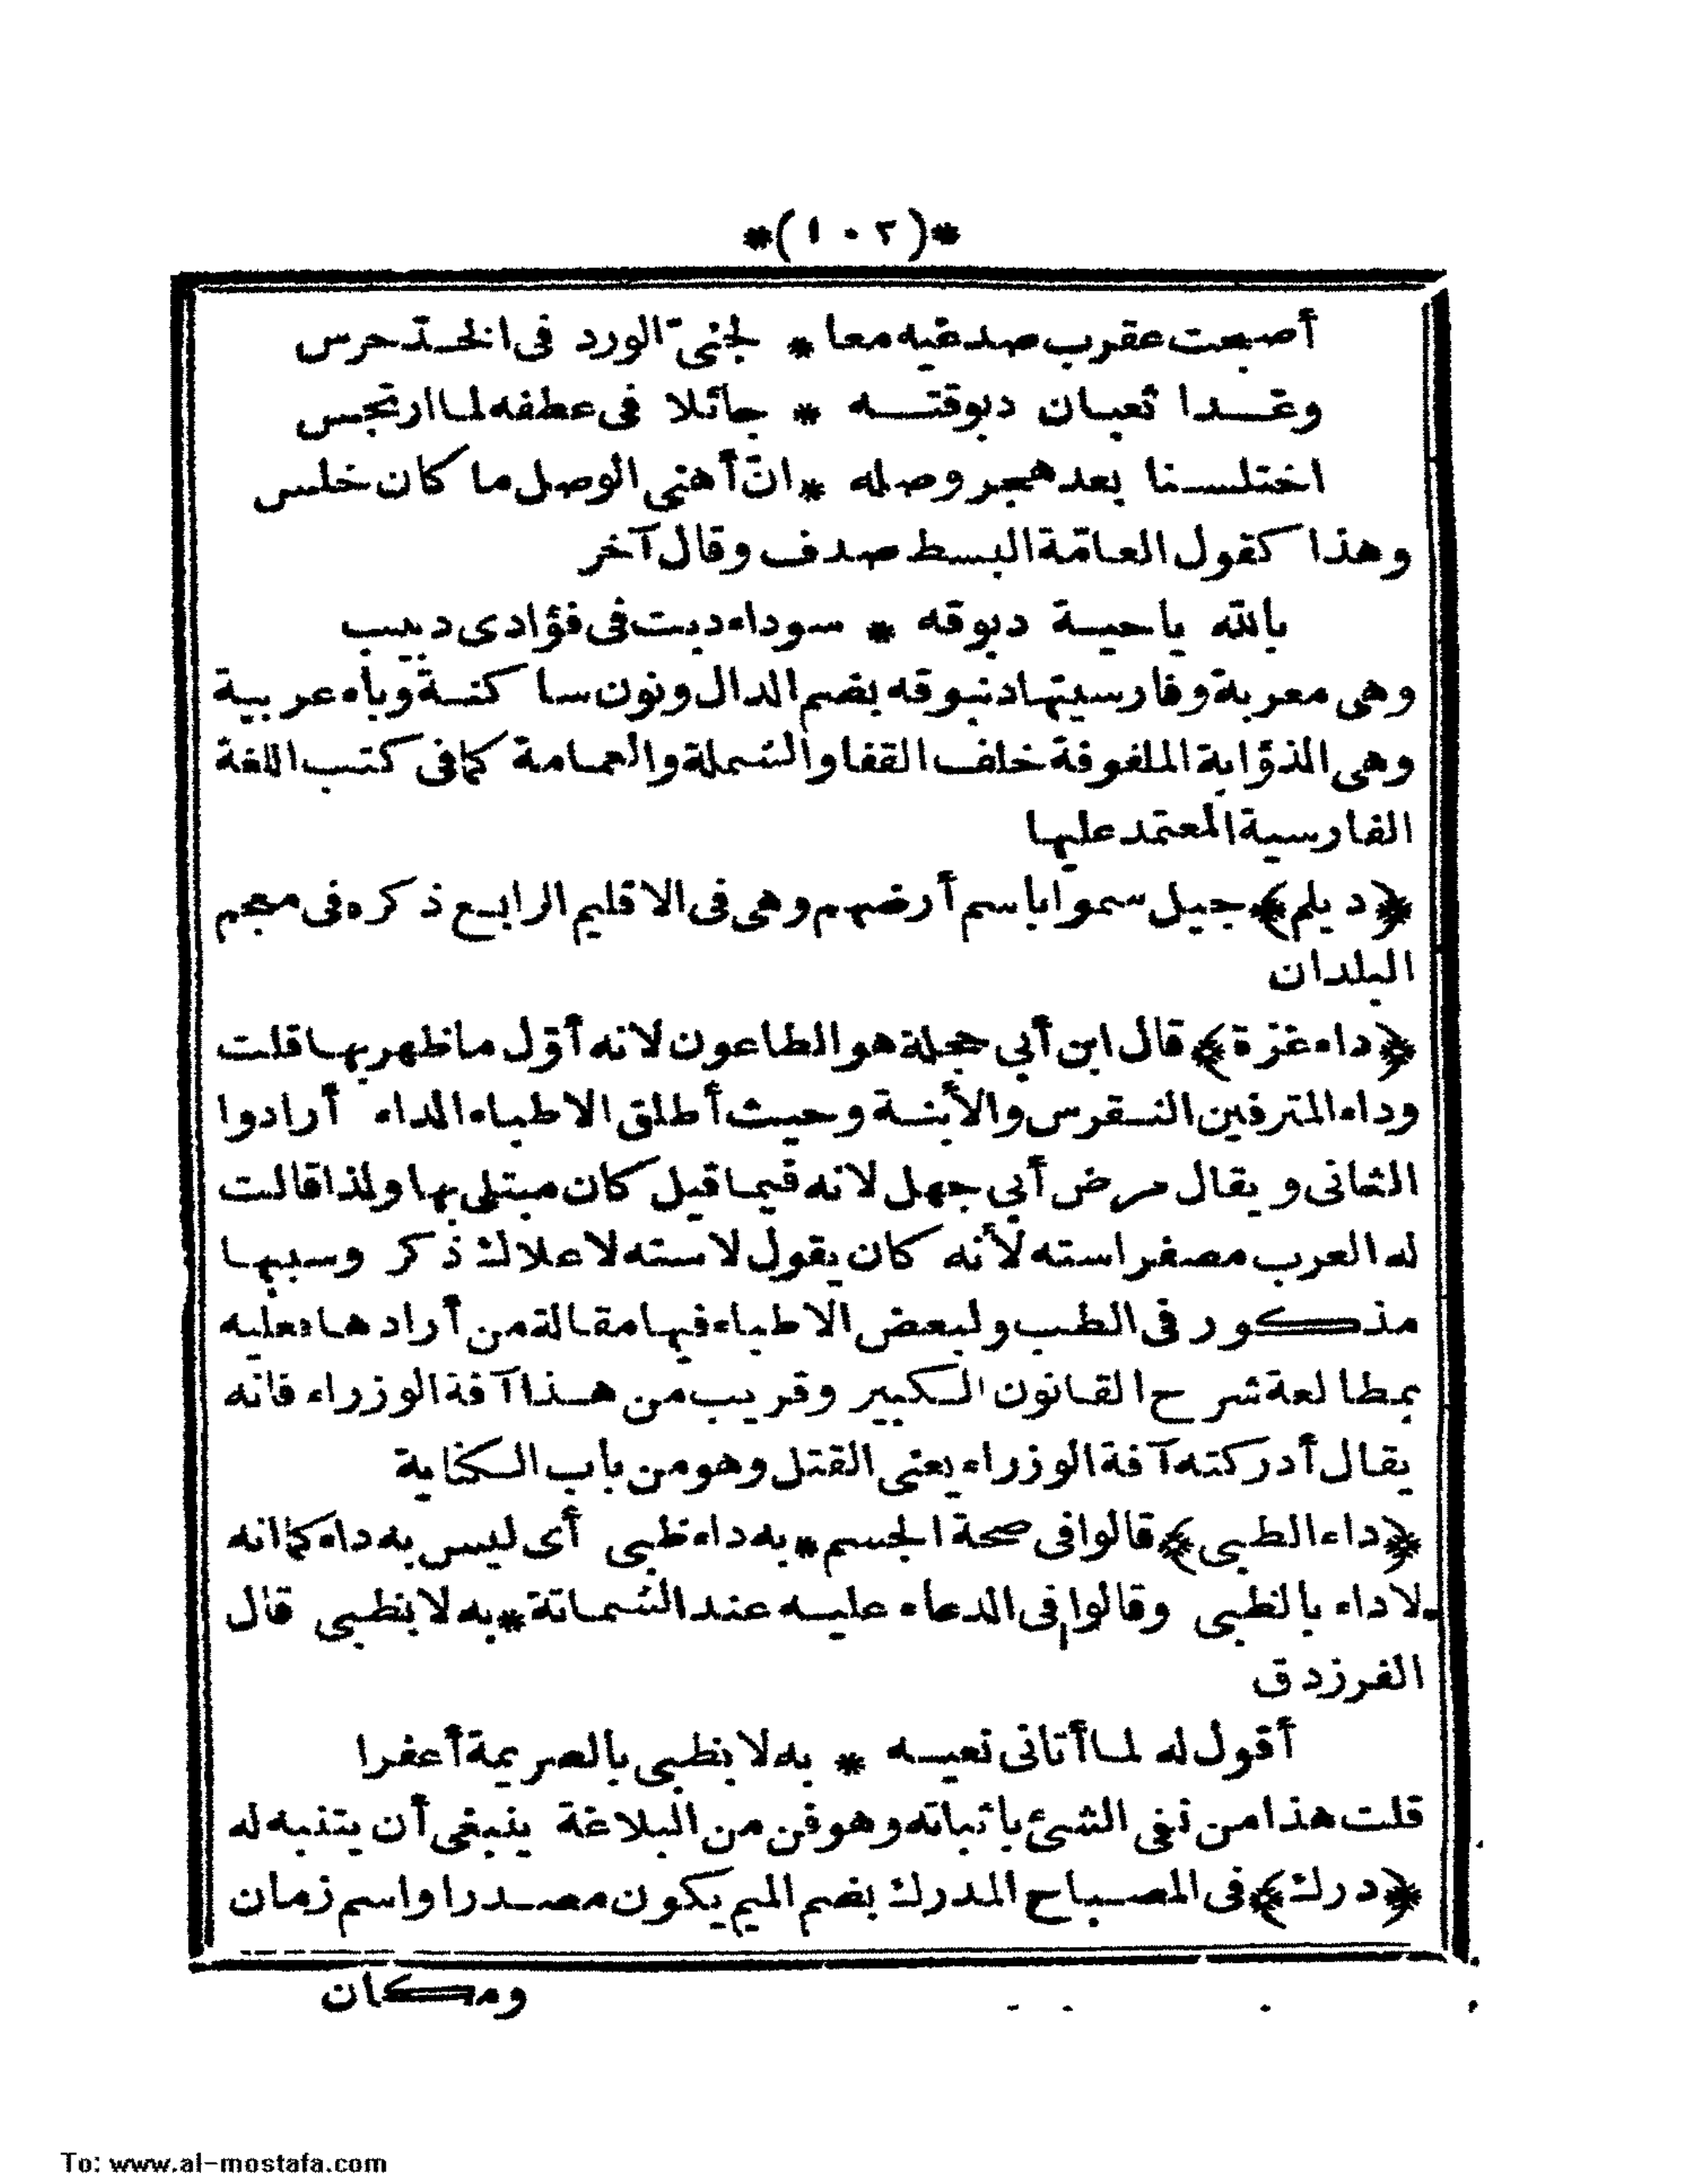 *(١٠٢)*
أصبحت عقرب صدغيه معا * لجنىّ الورد فى الخدّ حرس
وغدا ثعبان دبوقته * جائلا فى عطفه لما ارتجس
اختلسنا بعد هجر وصله * انّ أهنى الوصل ما كان خلس
وهذا كقول العامّة البسط صدف وقال آخر
بالله ياحية دبوقه * سوداء دبت فى فؤادى دبيب
وهى معربة وفارسيتها دنبوقه بضم الدال ونون ساكنة وباء عربية
وهى الذؤابة الملفوفة خلف القفا والشملة والعمامة كما فى كتب اللغة
الفارسية المعتمد عليها
﴿ديلم﴾ جيل سموا باسم أرضهم وهى فى الاقليم الرابع ذكره فى معجم
البلدان
﴿داء غزة﴾ قال ابن أبي حجلة هو الطاعون لانه أوّل ما ظهر بها قلت
وداء المترفين النقرس والأبنة وحيث أطلق الاطباء الداء أرادوا
الثانى ويقال مرض أبي جهل لانه فيما قيل كان مبتلى بها ولذا قالت
له العرب مصفر استه لأنه كان يقول لاسته لا علاك ذكر وسببها
مذكور فى الطب ولبعض الاطباء فيها مقالة من أرادها فعليه
بمطالعة شرح القانون الكبير وقريب من هذا آفة الوزراء فانه
يقال أدركته آفة الوزراء يعنى القتل وهو من باب الكناية
﴿داء الظبى﴾ قالوا فى صحة الجسم * به داء ظبى أى ليس به داء كما انه
لا داء بالظبى وقالوا فى الدعاء عليه عند الشماتة * به لا بظبى قال
الفرزدق
أقول له لما أتانى نعيه * به لا بظبى بالصريمة أعفرا
قلت هذا من نفى الشئ باثباته وهو فن من البلاغة ينبغى أن يتنبه له
﴿درك﴾ فى المصباح المدرك بضم الميم يكون مصدرا واسم زمان
ومكان
To: www.al-mostafa.com